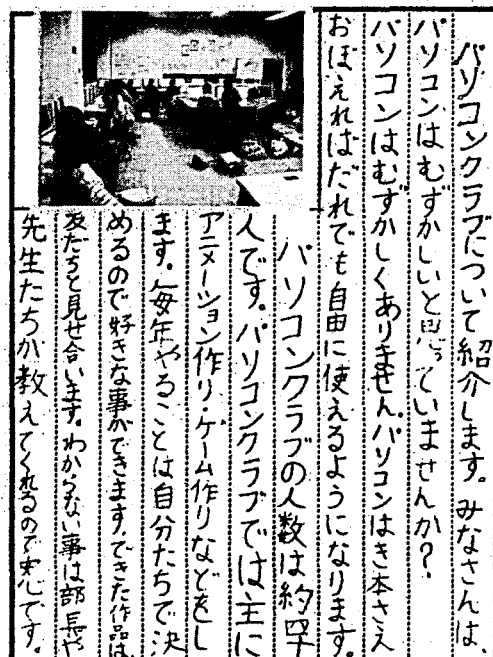 パソコンクラブについて紹介します。みなさんは、
パソコンはむずかしいと思っていませんか？
パソコンはむずかしくありません。パソコンはき本さえ
おぼえればだれでも自由に使えるようになります。
パソコンクラブの人数は約四十
人です。パソコンクラブでは主に
アニメーション作り・ゲーム作りなどをし
ます。毎年やることは自分たちで決
めるので好きな事ができます。できた作品は、
友だちと見せ合います。わからない事は部長や
先生たちが教えてくれるので安心です。